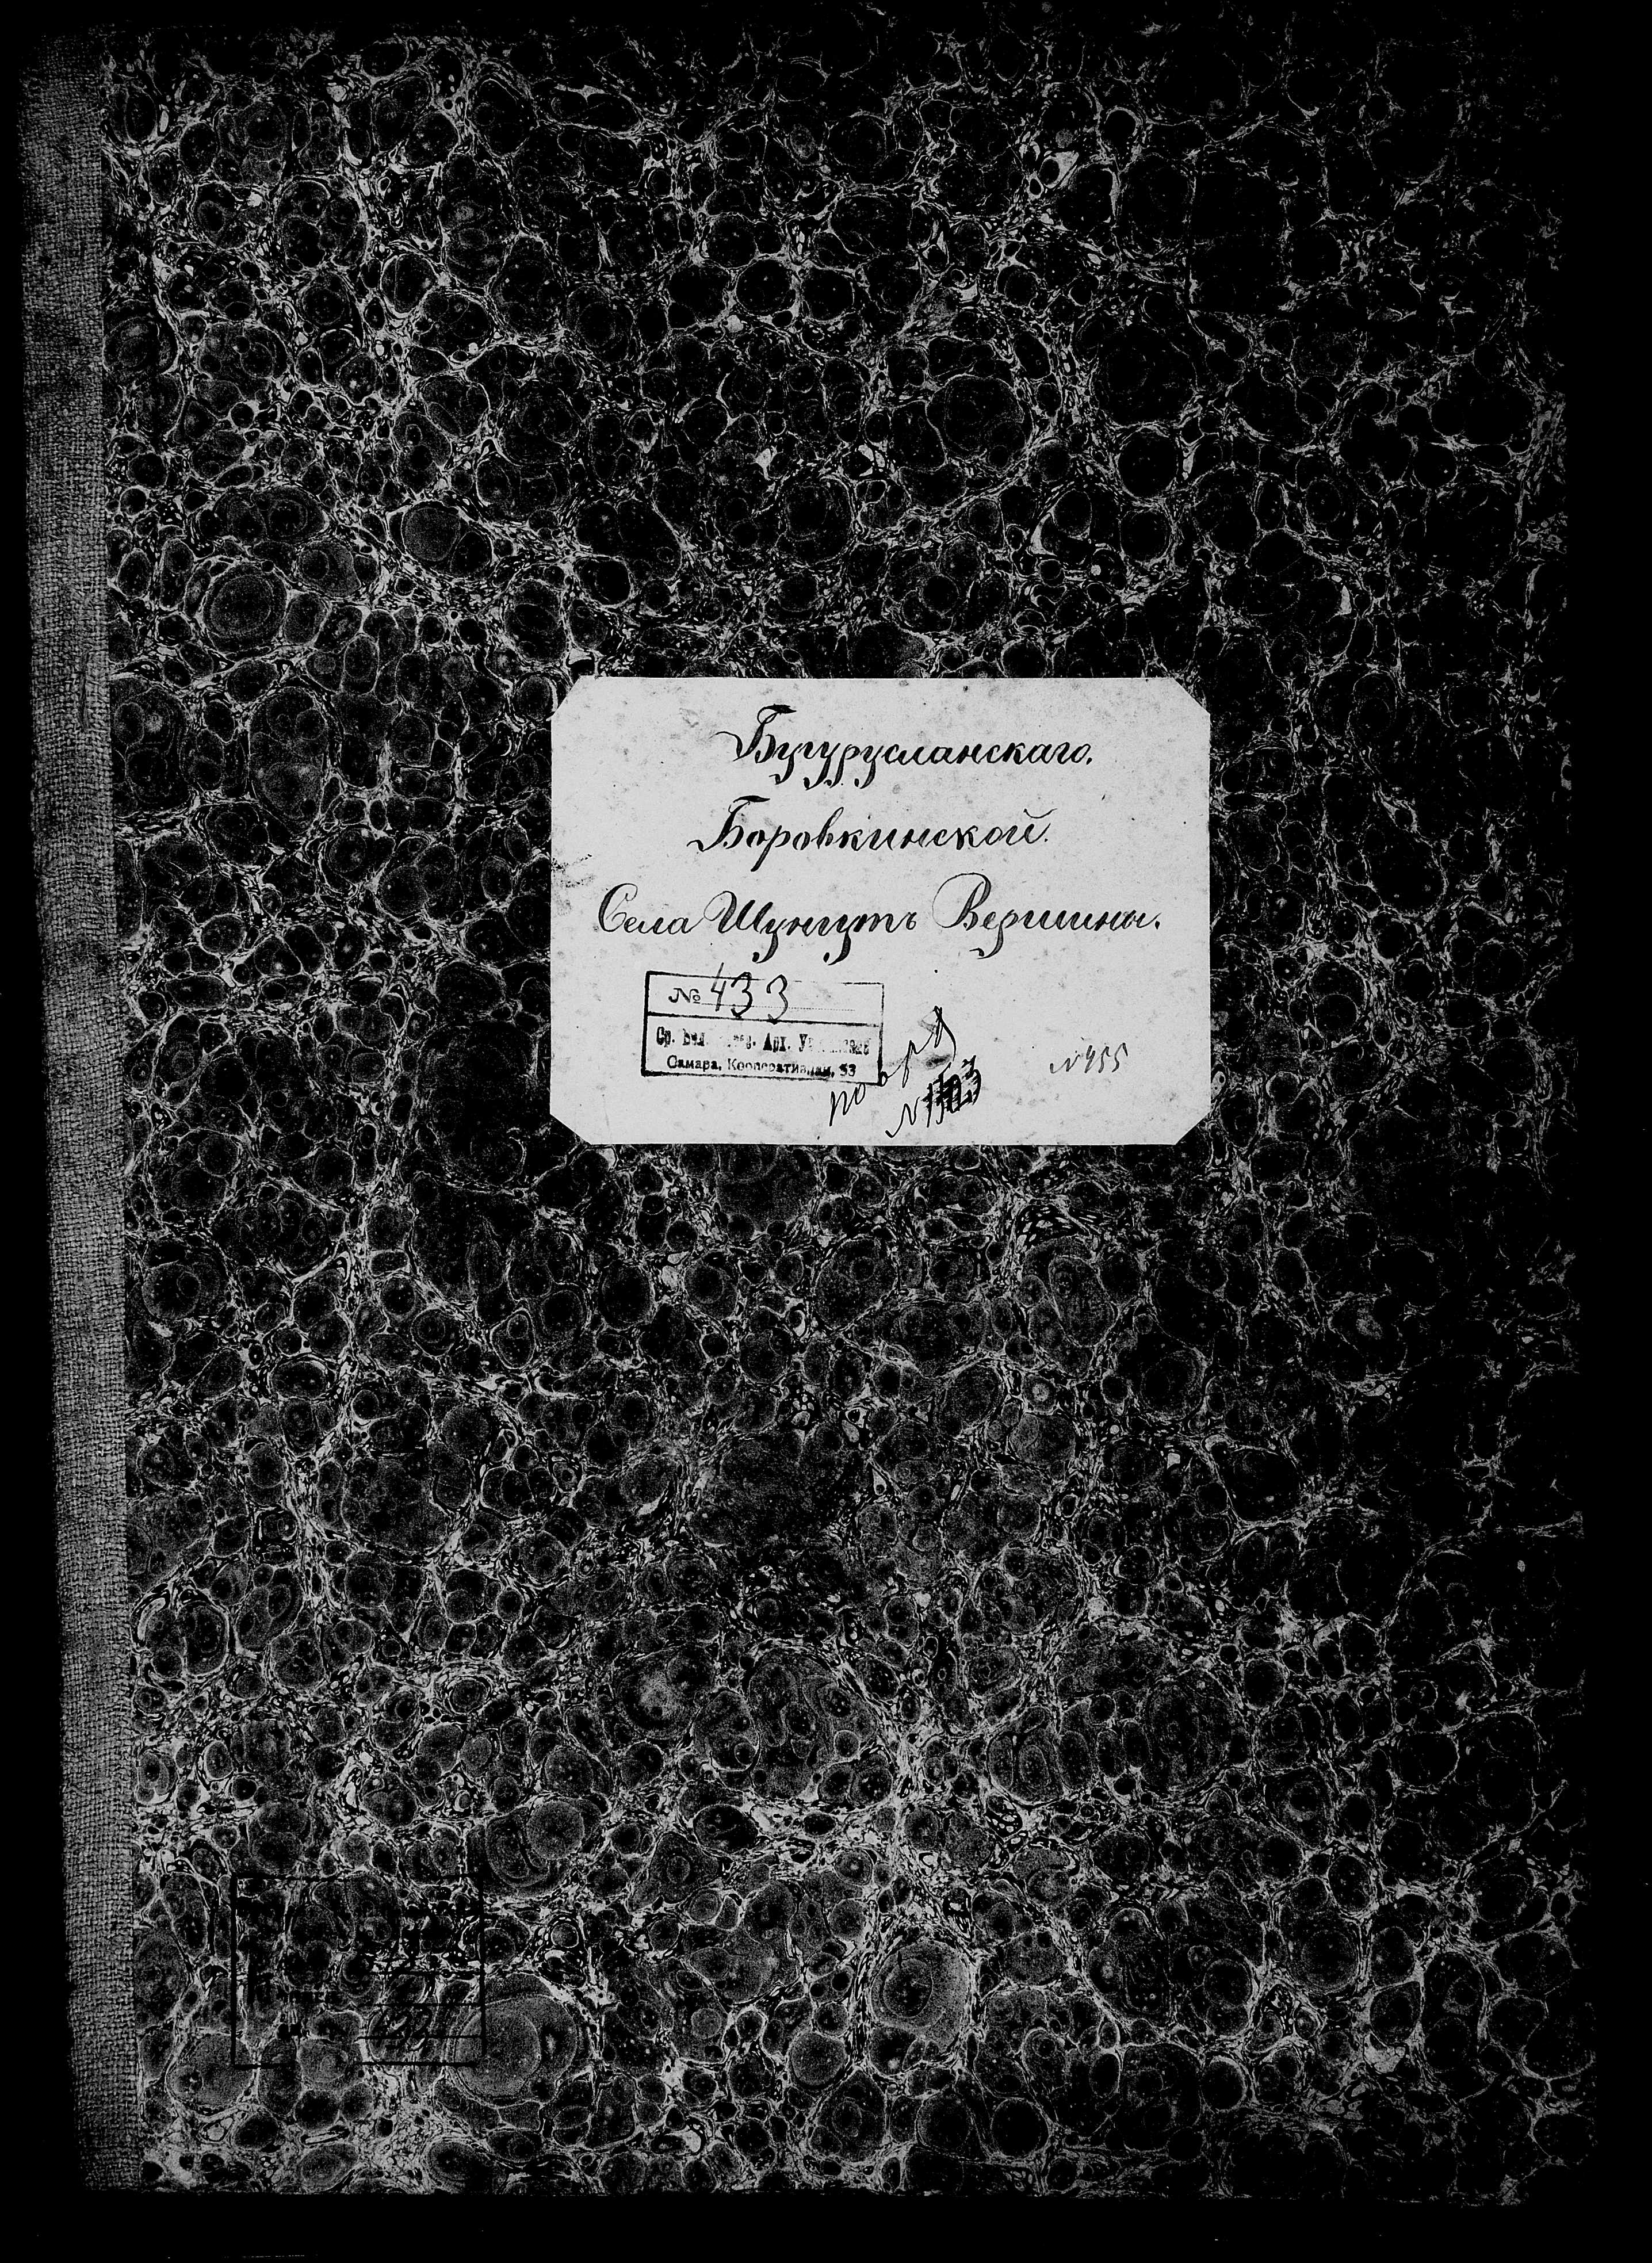 Бугурусланскаго.
Боровкинской.
Села Шунгутъ Вершины.
№ 433
Ср. Арх.
Самара, Кооперативная, 53
по обр
№455